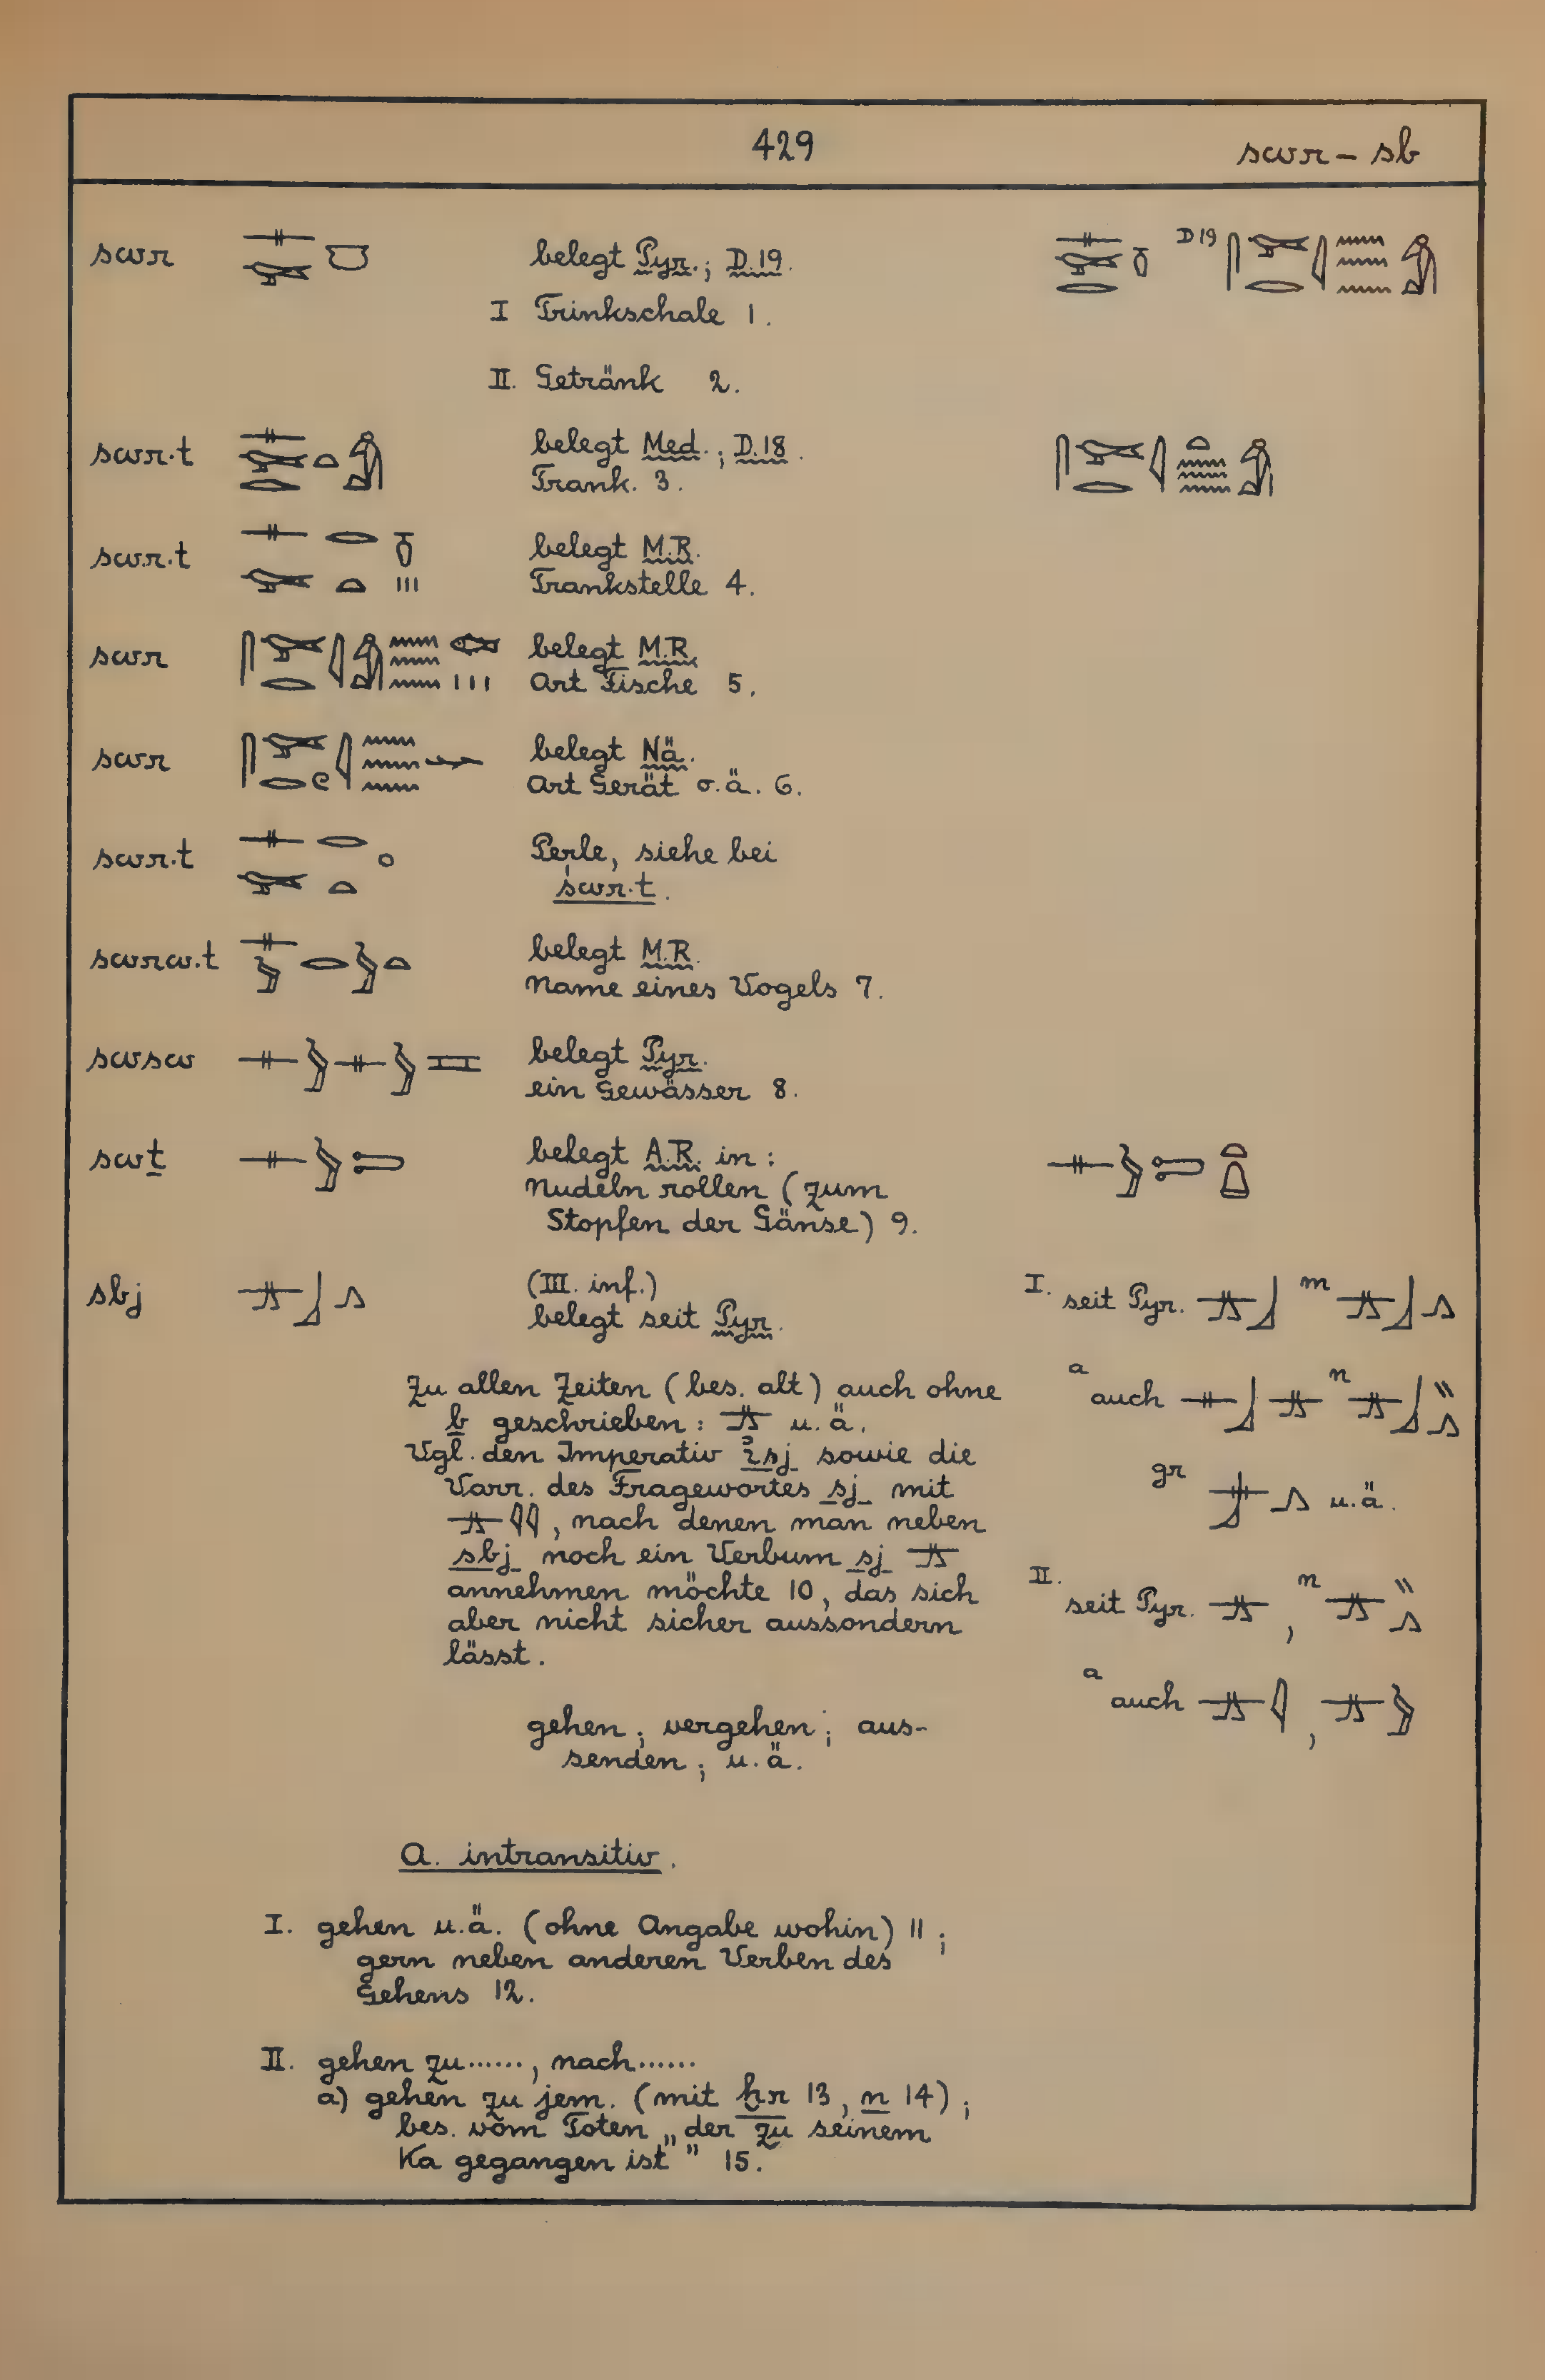 429
swr – sb
swr belegt Pyr.; D.19.
D19
I Trinkschale 1.
II. Getränk 2.
swr.t belegt Med.; D.18.
Trank. 3.
swr.t belegt M.R.
Trankstelle 4.
swr belegt M.R.
Art Fische 5.
swr belegt Nä.
Art Gerät o.ä. 6.
swr.t Perle, siehe bei
śwr.t.
swrw.t belegt M.R.
Name eines Vogels 7.
swsw belegt Pyr.
ein Gewässer 8.
swṯ belegt A.R. in:
Nudeln rollen (zum
Stopfen der Gänse) 9.
sbj (III. inf.)
belegt seit Pyr.
Zu allen Zeiten (bes. alt) auch ohne
b geschrieben: u.ä.
Vgl. den Imperativ ꞽsj sowie die
Varr. des Fragewortes sj mit
, nach denen man neben
sbj noch ein Verbum sj
annehmen möchte 10, das sich
aber nicht sicher aussondern
lässt.
gehen; vergehen; aus-
senden; u.ä.
I. seit Pyr. m
a auch n
gr u.ä.
II. seit Pyr. , n
a auch ,
A. intransitiv.
I. gehen u.ä. (ohne Angabe wohin) 11;
gern neben anderen Verben des
Gehens 12.
II. gehen zu......, nach......
a) gehen zu jem. (mit ḫr 13, n 14);
bes. vom Toten „der zu seinem
Ka gegangen ist" 15.